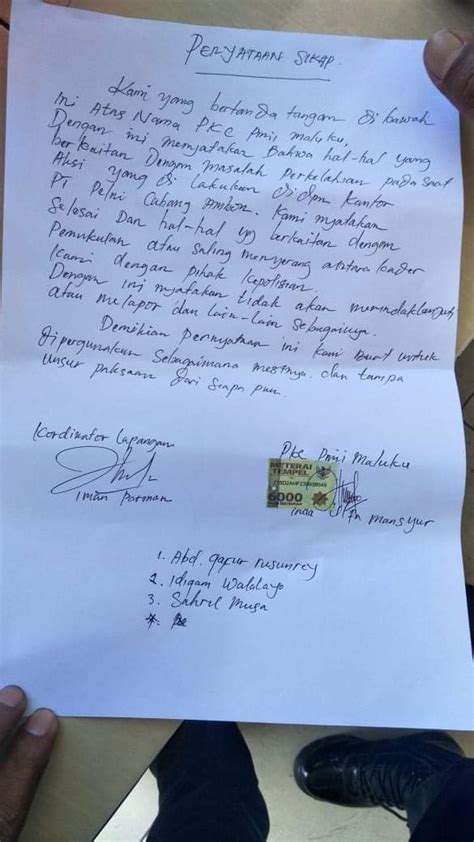 PERYATAAN SIKAP.
Kami yang bertanda tangan di bawah
ini Atas Nama PKC PMII Maluku,
Dengan ini menyatakan Bahwa hal-hal yang
berkaitan Dengan masalah Perkelahian pada saat
Aksi yang di Lakukan di dpn Kantor
PT Pelni Cabang Ambon. Kami nyatakan
Selesai Dan hal-hal yg berkaitan dengan
Pemukulan atau saling menyerang antara kader
Kami dengan pihak Kepolisian.
Dengan ini nyatakan tidak akan menindaklanjuti
atau melapor dan lain-lain sebagainya.
Demikian pernyataan ini kami buat untuk
dipergunakan sebagaimana mestinya. dan tampa
unsur paksaan dari siapa pun.
Kordinator Lapangan
PKC PMII Maluku
METERAI
TEMPEL
6000
Iman Parman
Mansyur
1. Abd. gafur rusunrey
2. Idigam Walalayo
3. Sahril Musa